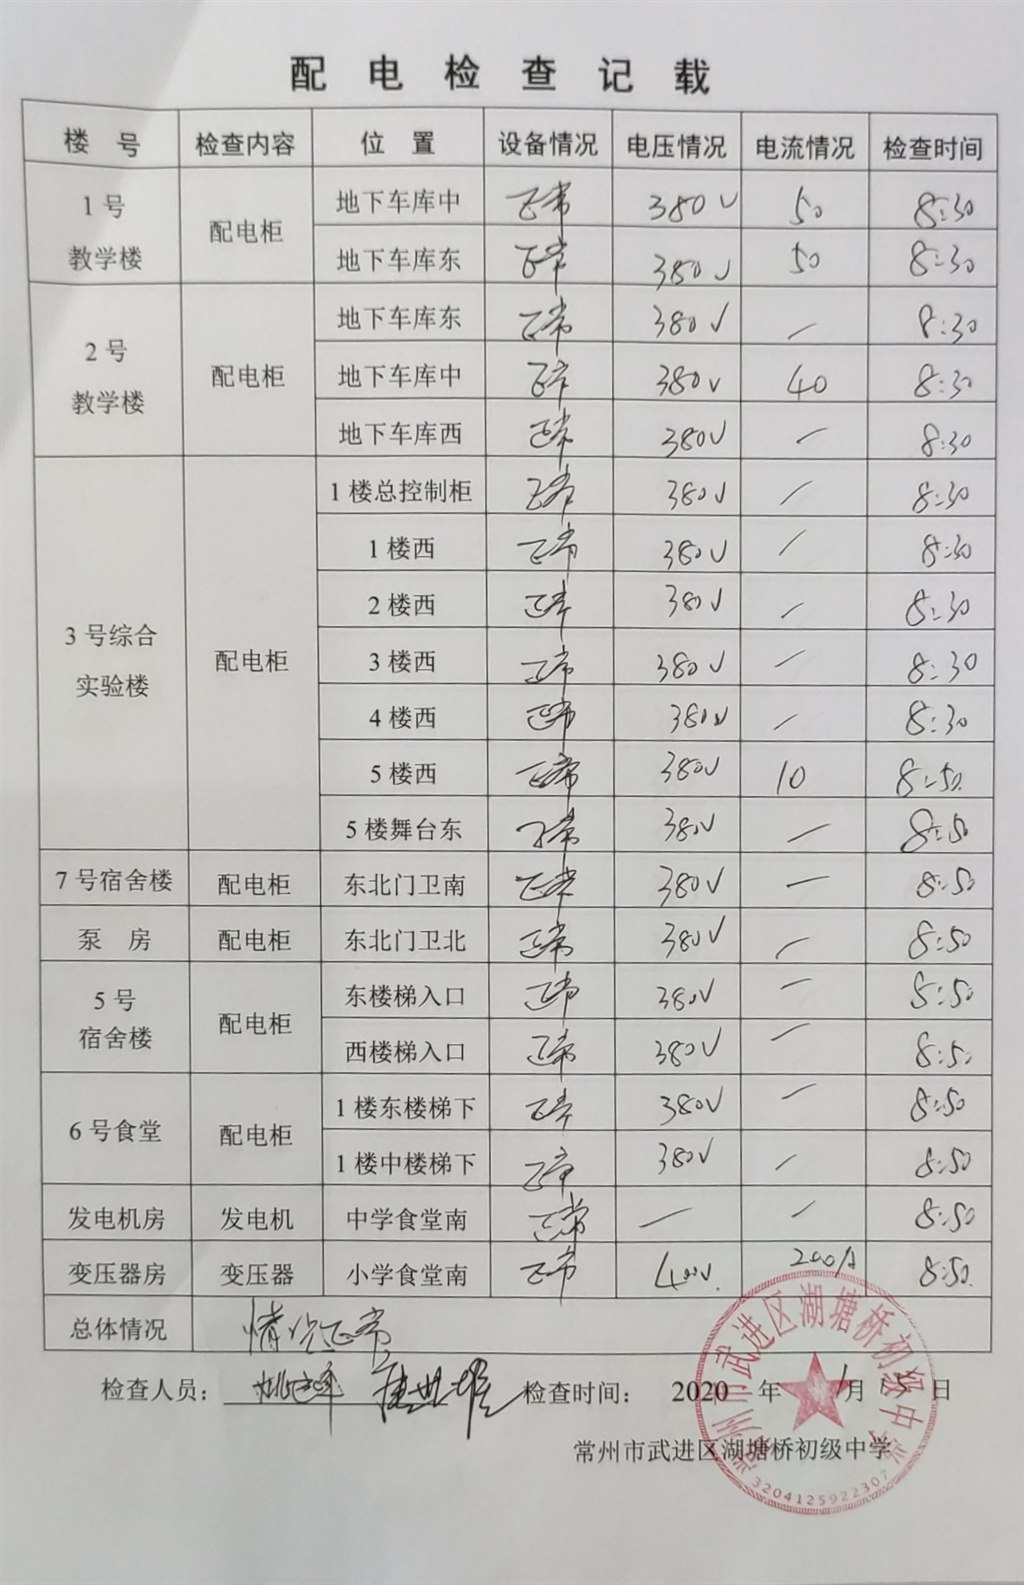 配电检查记载
楼号 检查内容 位置 设备情况 电压情况 电流情况 检查时间
1号教学楼 配电柜 地下车库中 正常 380V 50 8:30
地下车库东 正常 380V 50 8:30
2号教学楼 配电柜 地下车库东 正常 380V — 8:30
地下车库中 正常 380V 40 8:30
地下车库西 正常 380V — 8:30
3号综合实验楼 配电柜 1楼总控制柜 正常 380V — 8:30
1楼西 正常 380V — 8:30
2楼西 正常 380V — 8:30
3楼西 正常 380V — 8:30
4楼西 正常 380V — 8:30
5楼西 正常 380V 10 8:50
5楼舞台东 正常 380V — 8:50
7号宿舍楼 配电柜 东北门卫南 正常 380V — 8:50
泵房 配电柜 东北门卫北 正常 380V — 8:50
5号宿舍楼 配电柜 东楼梯入口 正常 380V — 8:50
西楼梯入口 正常 380V — 8:50
6号食堂 配电柜 1楼东楼梯下 正常 380V — 8:50
1楼中楼梯下 正常 380V — 8:50
发电机房 发电机 中学食堂南 正常 — — 8:50
变压器房 变压器 小学食堂南 正常 400V 200A 8:50
总体情况 情况正常
检查人员： 检查时间： 2020 年 1月 日
常州市武进区湖塘桥初级中学
常州市武进区湖塘桥初级中学
3204125922307